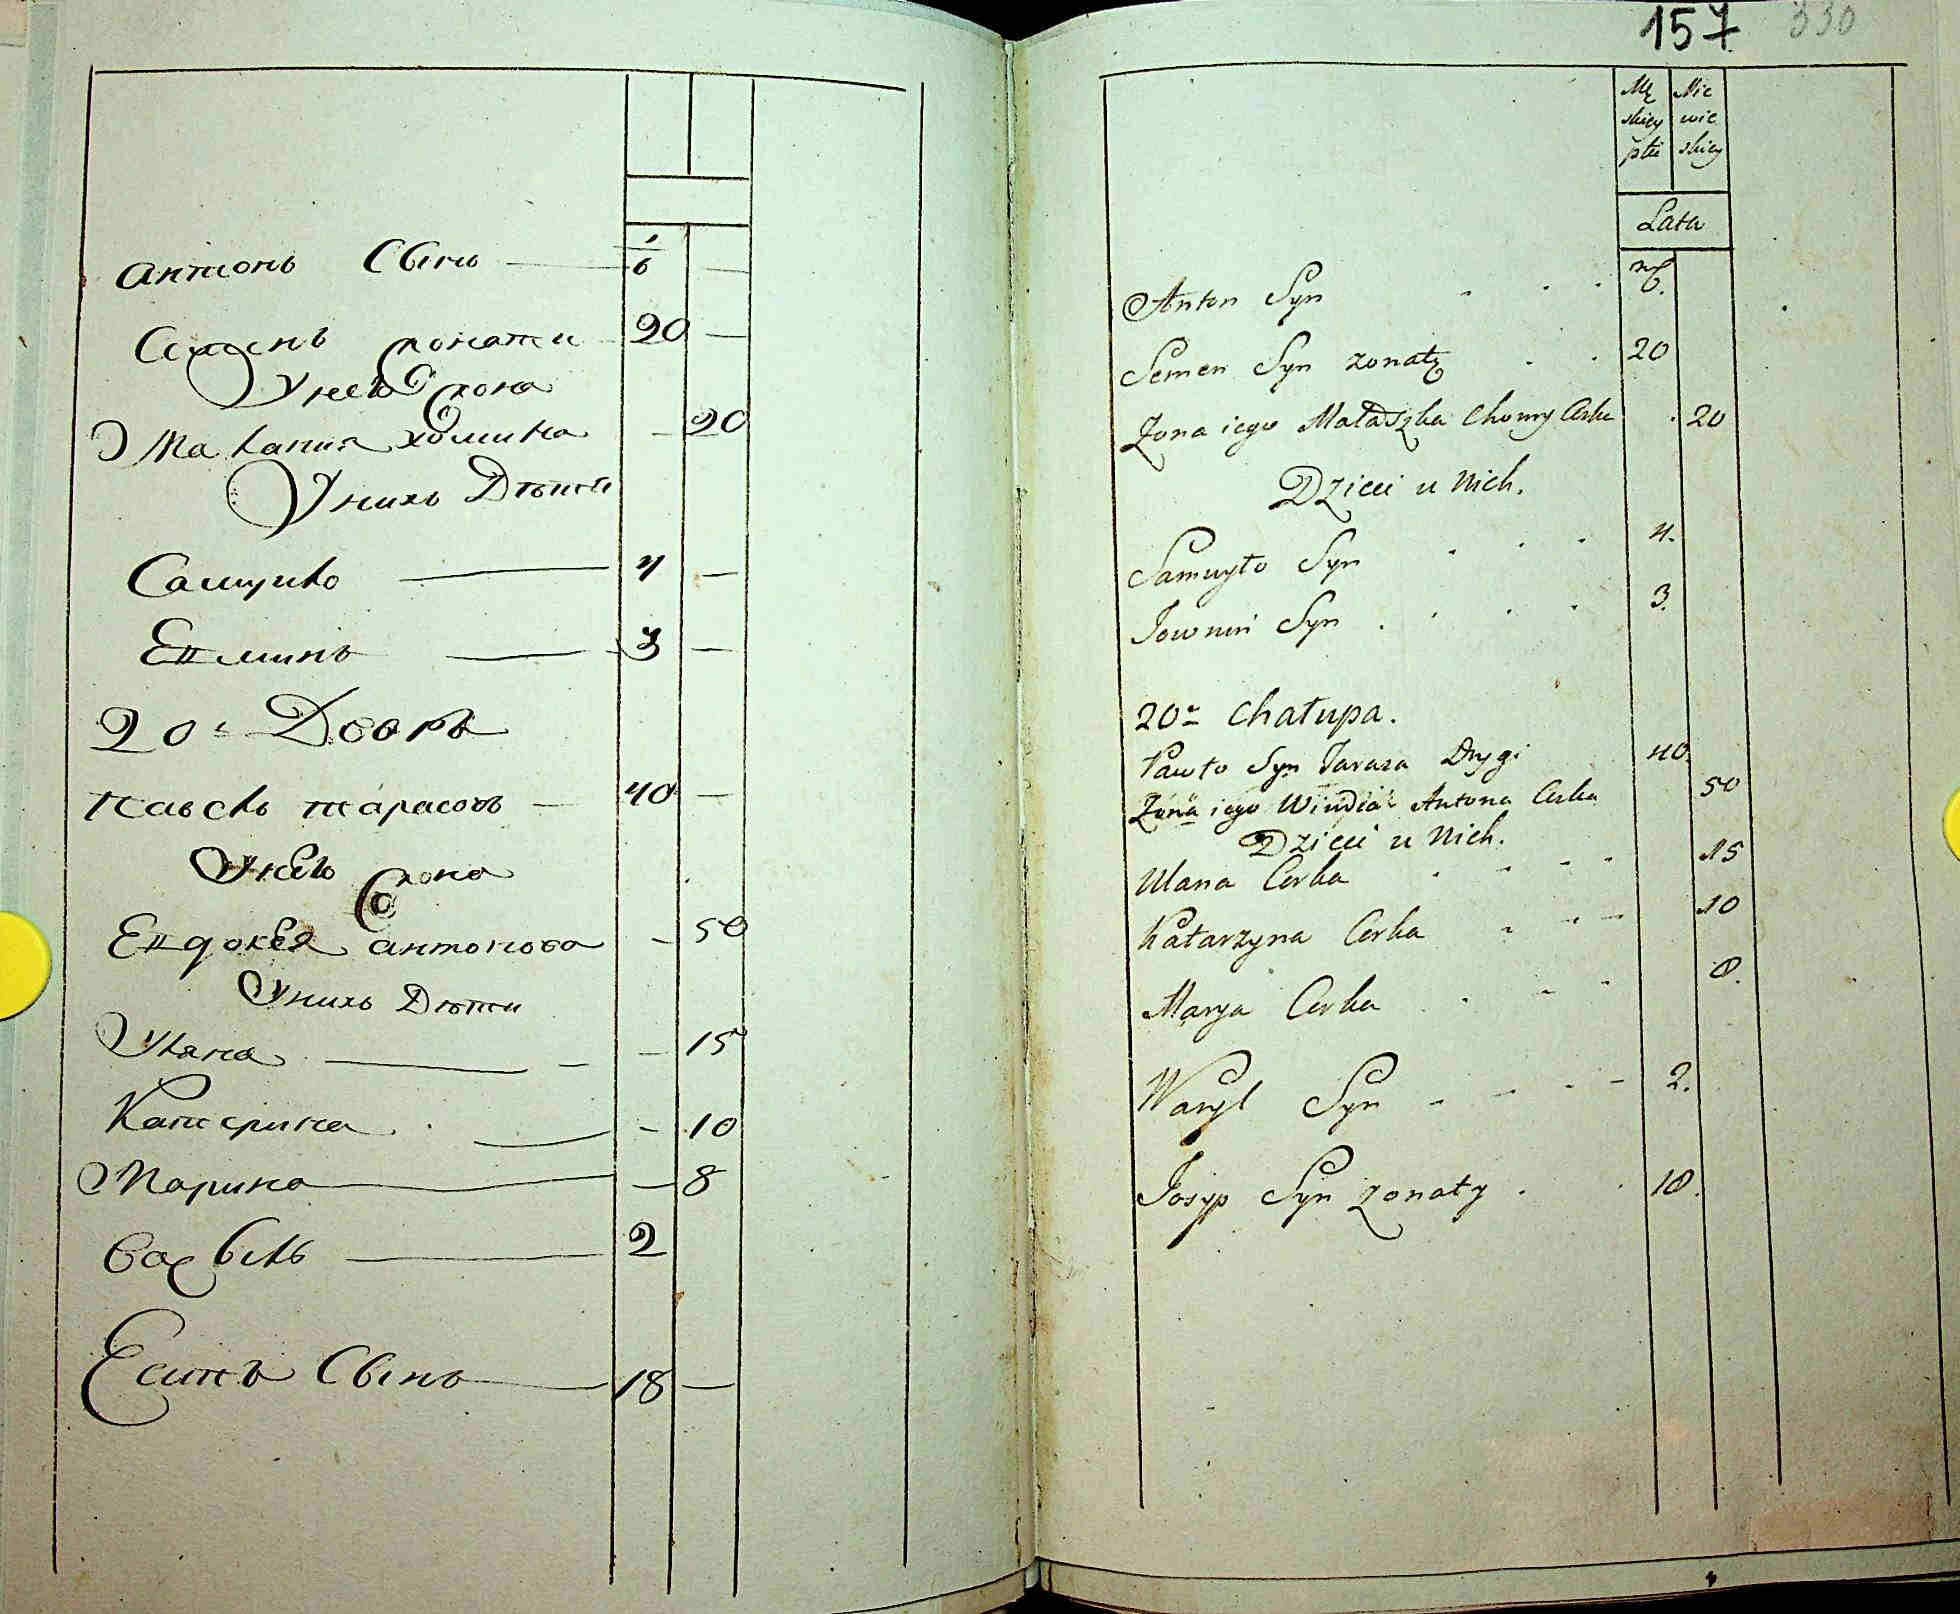 Антонъ Сынъ — 1/6 —
Семенъ жонати 20 —
У него жона
Малания хомина — 20
У нихъ Дѣти
Самуило — 4 —
Евминъ — 3 —
20й Дворъ
Павелъ тарасовъ — 40 —
У него жона
Евдокея антонова — 50
У нихъ Дѣти
Уляна — 15
Катерина — 10
Марина — 8
Василь — 2
Есипъ Сынъ — 18 —
157 330
Mę Nie
skiey wie
płci skiey
Lata
Anton Syn 6.
Semen Syn zonaty 20
Zona iego Małaszka Chomy Cerka 20
Dzieci u Nich.
Samuyło Syn 4.
Jowmin Syn 3.
20a Chałupa.
Pawło Syn Tarasa Drygi 40.
Zona iego Antona Cerka 50
Dzieci u Nich.
Ulana Cerka 15
Katarzyna Cerka 10
Marya Cerka 8.
Wasyl Syn 2.
Josyp Syn zonaty 18.